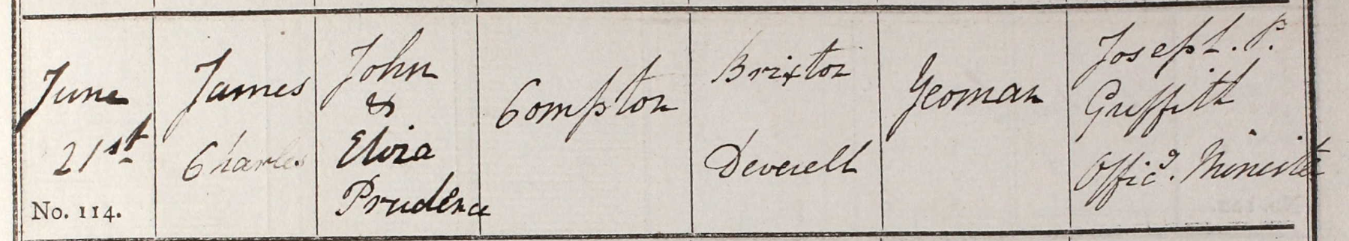 June
21st
No. 114.
James
Charles
John
&
Elvia
Prudence
Compton
Brixton
Deverell
Yeoman
Joseph. P.
Griffith
Officg. Minister